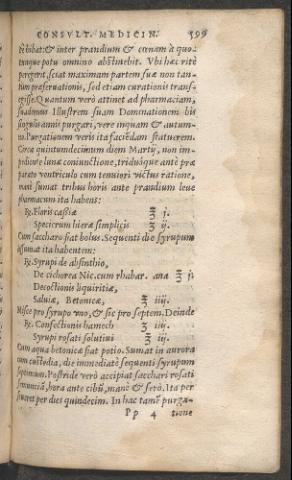 CONSVLT. MEDICIN. 599
tè bibat: & inter prandium & cœnam à quo-
cunque potu omnino abstinebit. Vbi hæc ritè
peregerit, sciat maximam partem suæ non tan-
tùm præseruationis, sed etiam curationis trans-
egisse. Quantum verò attinet ad pharmaciam,
suademus Illustrem suam Dominationem bis
singulis annis purgari, vere inquam & autum-
no. Purgationem veris ita faciēdam statuerem.
Circa quintumdecimum diem Martij, non im-
pediente lunæ coniunctione, triduóque antè præ
parato ventriculo cum tenuiori victus ratione,
manè sumat tribus horis ante prandium leue
pharmacum ita habens:
℞. Floris cassiæ ℥ j.
Specierum hieræ simplicis ʒ ij.
Cum saccharo fiat bolus. Sequenti die syrupum
assumat ita habentem:
℞. Syrupi de absinthio,
De cichorea Nic. cum rhabar. ana ℥ j.
Decoctionis liquiritiæ,
Saluiæ, Betonicæ, ℥ iiij.
Misce pro syrupo vno, & sic pro septem. Deinde
℞. Confectionis hamech ʒ iiij.
Syrupi rosati solutiui ℥ iij.
Cum aqua betonicæ fiat potio. Sumat in aurora
cum custodia, die immediatè sequenti syrupum
septimum. Postridie verò accipiat sacchari rosati
semunciā, hora ante cibū, manè & serò. Ita per
seueret per dies quindecim. In hac tamē purga-
Pp 4 tione